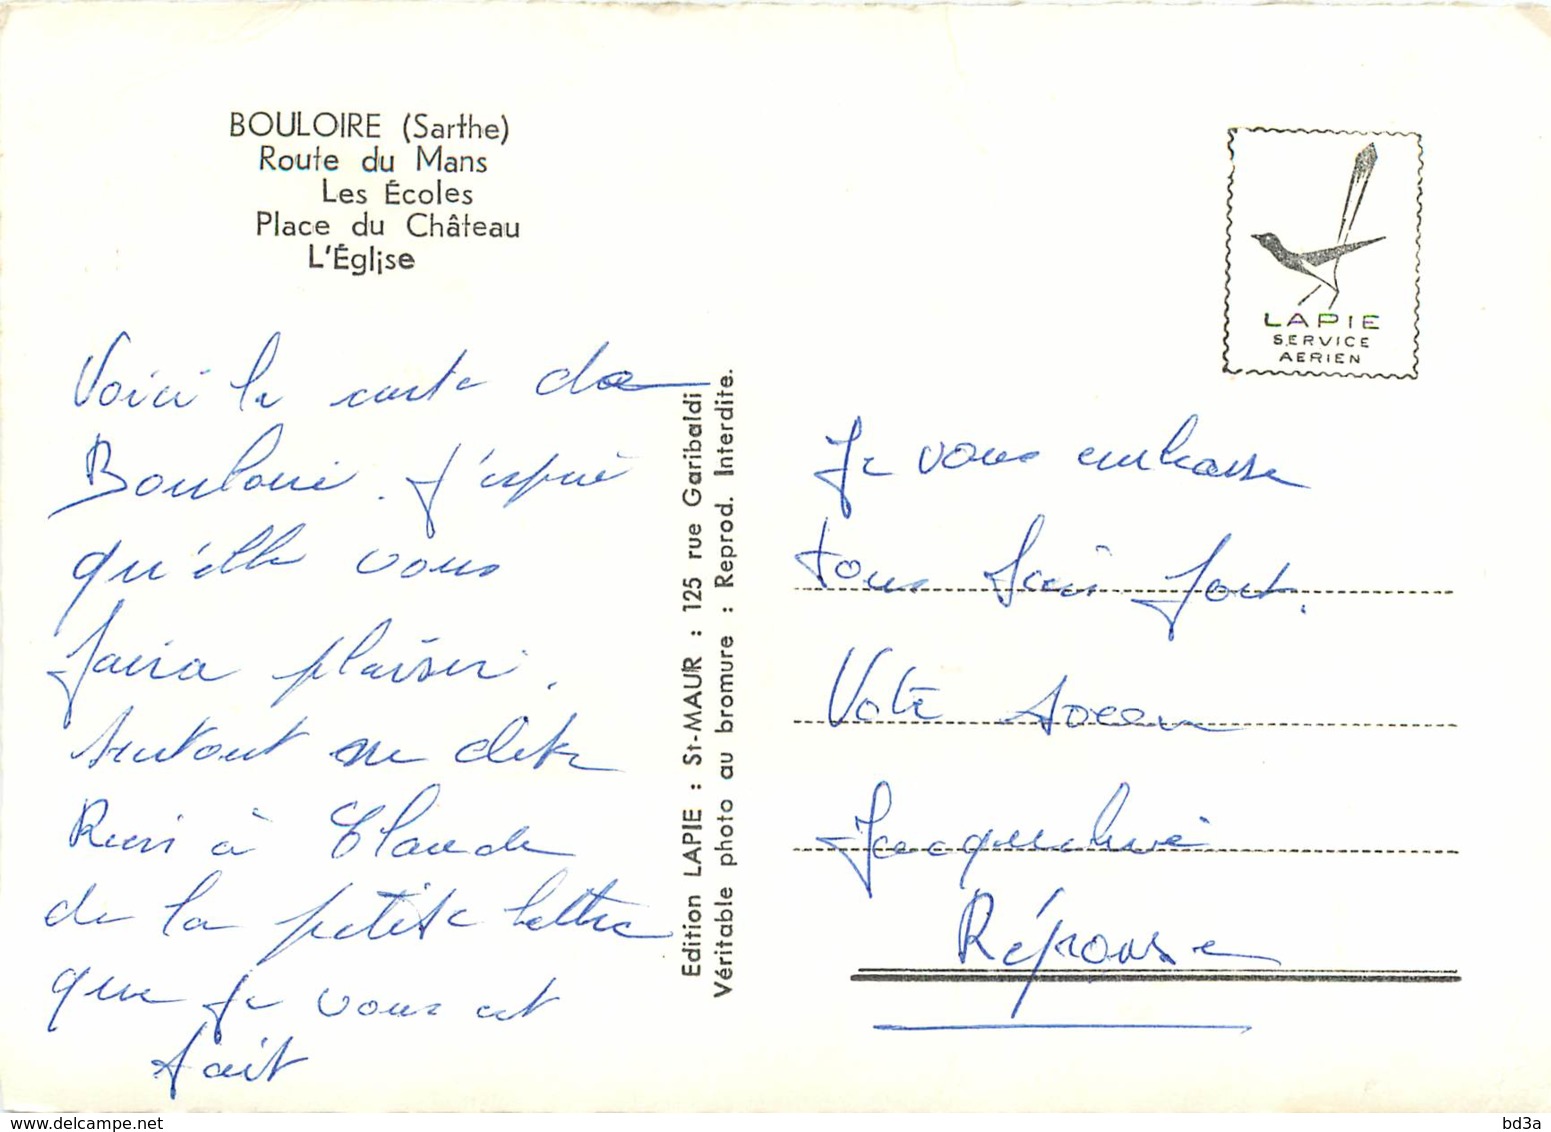 BOULOIRE (Sarthe)
Route du Mans
Les Écoles
Place du Château
L'Église
LAPIE
SERVICE
AERIEN
Voici la carte de
Bouloire. J'espère
qu'elle vous
faira plaisir.
Surtout ne dite
Rien à Claude
de la petite lettre
que je vous est
fait
Edition LAPIE : St-MAUR : 125 rue Garibaldi
Véritable photo au bromure : Reprod. Interdite.
Je vous embrasse
tous bien fort.
Votre soeur
Jacqueline
Réponse
www.delcampe.net
bd3a